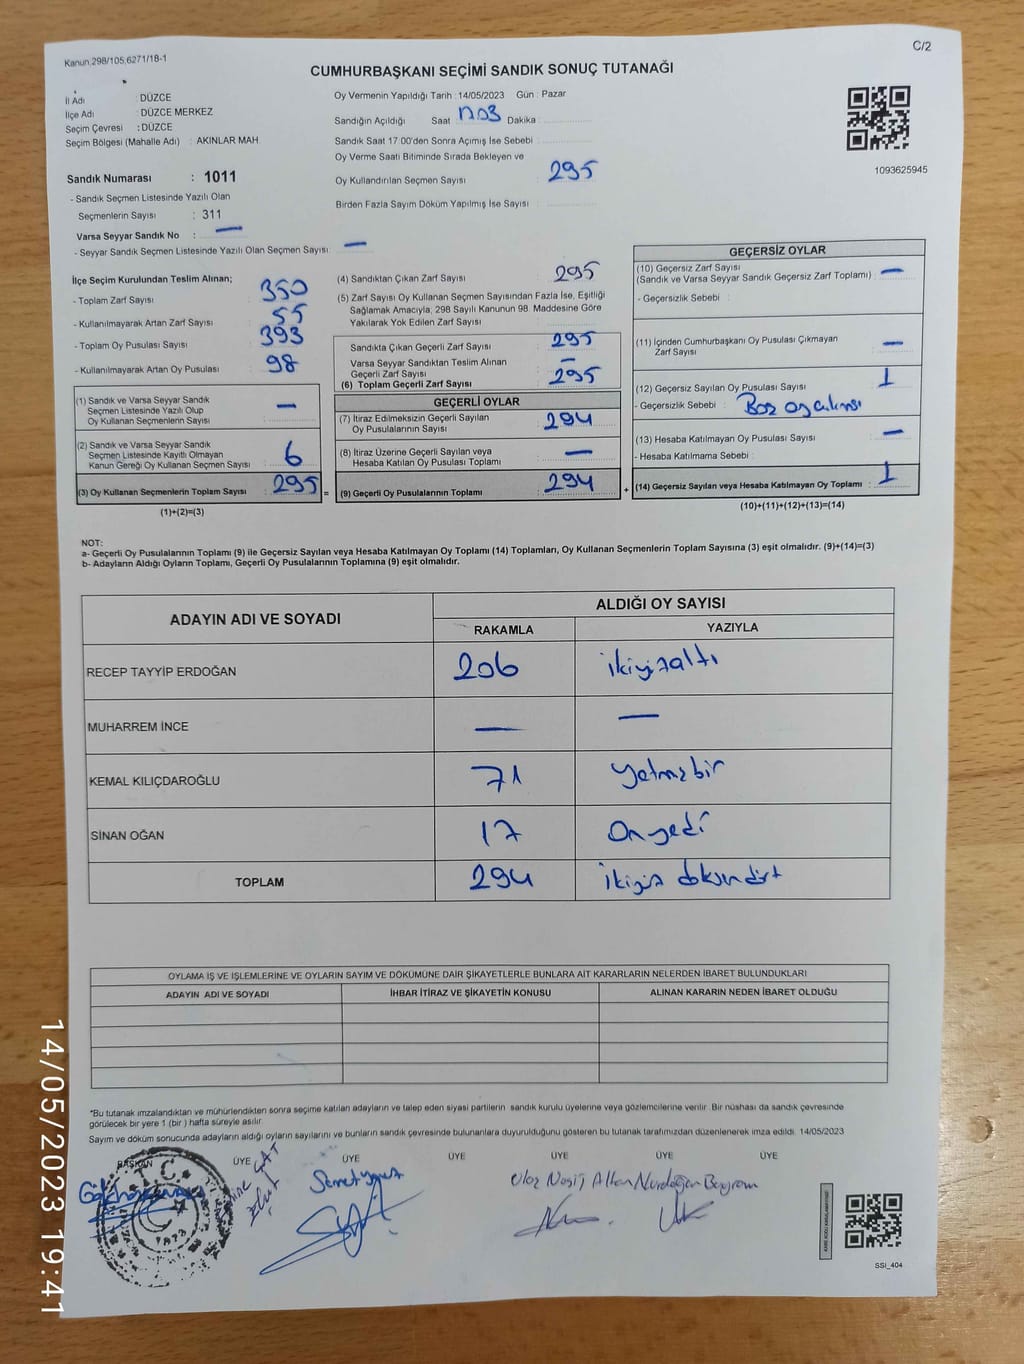 Kanun,298/105,6271/18-1
C/2
CUMHURBAŞKANI SEÇİMİ SANDIK SONUÇ TUTANAĞI
İl Adı : DÜZCE
İlçe Adı : DÜZCE MERKEZ
Seçim Çevresi : DÜZCE
Seçim Bölgesi (Mahalle Adı) : AKINLAR MAH
Sandık Numarası : 1011
- Sandık Seçmen Listesinde Yazılı Olan
Seçmenlerin Sayısı : 311
Varsa Seyyar Sandık No : —
- Seyyar Sandık Seçmen Listesinde Yazılı Olan Seçmen Sayısı: —
Oy Vermenin Yapıldığı Tarih : 14/05/2023 Gün : Pazar
Sandığın Açıldığı Saat 17.03 Dakika :
Sandık Saat 17:00'den Sonra Açımış İse Sebebi :
Oy Verme Saati Bitiminde Sırada Bekleyen ve
Oy Kullandırılan Seçmen Sayısı : 295
Birden Fazla Sayım Döküm Yapılmış İse Sayısı :
1093625945
İlçe Seçim Kurulundan Teslim Alınan;
- Toplam Zarf Sayısı : 350
- Kullanılmayarak Artan Zarf Sayısı : 55
- Toplam Oy Pusulası Sayısı : 393
- Kullanılmayarak Artan Oy Pusulası : 98
(1) Sandık ve Varsa Seyyar Sandık
Seçmen Listesinde Yazılı Olup
Oy Kullanan Seçmenlerin Sayısı : —
(2) Sandık ve Varsa Seyyar Sandık
Seçmen Listesinde Kayıtlı Olmayan
Kanun Gereği Oy Kullanan Seçmen Sayısı : 6
(3) Oy Kullanan Seçmenlerin Toplam Sayısı : 295 =
(1)+(2)=(3)
(4) Sandıktan Çıkan Zarf Sayısı : 295
(5) Zarf Sayısı Oy Kullanan Seçmen Sayısından Fazla İse, Eşitliği
Sağlamak Amacıyla; 298 Sayılı Kanunun 98. Maddesine Göre
Yakılarak Yok Edilen Zarf Sayısı :
Sandıkta Çıkan Geçerli Zarf Sayısı : 295
Varsa Seyyar Sandıktan Teslim Alınan
Geçerli Zarf Sayısı : —
(6) Toplam Geçerli Zarf Sayısı : 295
GEÇERLİ OYLAR
(7) İtiraz Edilmeksizin Geçerli Sayılan
Oy Pusulalarının Sayısı : 294
(8) İtiraz Üzerine Geçerli Sayılan veya
Hesaba Katılan Oy Pusulası Toplamı : —
(9) Geçerli Oy Pusulalarının Toplamı : 294 +
GEÇERSİZ OYLAR
(10) Geçersiz Zarf Sayısı
(Sandık ve Varsa Seyyar Sandık Geçersiz Zarf Toplamı) : —
- Geçersizlik Sebebi :
(11) İçinden Cumhurbaşkanı Oy Pusulası Çıkmayan
Zarf Sayısı : —
(12) Geçersiz Sayılan Oy Pusulası Sayısı : 1
- Geçersizlik Sebebi :
(13) Hesaba Katılmayan Oy Pusulası Sayısı : —
- Hesaba Katılmama Sebebi :
(14) Geçersiz Sayılan veya Hesaba Katılmayan Oy Toplamı : 1
(10)+(11)+(12)+(13)=(14)
NOT:
a- Geçerli Oy Pusulalarının Toplamı (9) ile Geçersiz Sayılan veya Hesaba Katılmayan Oy Toplamı (14) Toplamları, Oy Kullanan Seçmenlerin Toplam Sayısına (3) eşit olmalıdır. (9)+(14)=(3)
b- Adayların Aldığı Oyların Toplamı, Geçerli Oy Pusulalarının Toplamına (9) eşit olmalıdır.
ADAYIN ADI VE SOYADI
ALDIĞI OY SAYISI
RAKAMLA YAZIYLA
RECEP TAYYİP ERDOĞAN 206 ikiyüzaltı
MUHARREM İNCE — —
KEMAL KILIÇDAROĞLU 71 Yetmişbir
SİNAN OĞAN 17 Onyedi
TOPLAM 294 ikiyüz doksandört
OYLAMA İŞ VE İŞLEMLERİNE VE OYLARIN SAYIM VE DÖKÜMÜNE DAİR ŞİKAYETLERLE BUNLARA AİT KARARLARIN NELERDEN İBARET BULUNDUKLARI
ADAYIN ADI VE SOYADI İHBAR İTİRAZ VE ŞİKAYETİN KONUSU ALINAN KARARIN NEDEN İBARET OLDUĞU
*Bu tutanak imzalandıktan ve mühürlendikten sonra seçime katılan adayların ve talep eden siyasi partilerin sandık kurulu üyelerine veya gözlemcilerine verilir. Bir nüshası da sandık çevresinde
görülecek bir yere 1 (bir) hafta süreyle asılır.
Sayım ve döküm sonucunda adayların aldığı oyların sayılarını ve bunların sandık çevresinde bulunanlara duyurulduğunu gösteren bu tutanak tarafımızdan düzenlenerek imza edildi. 14/05/2023
BAŞKAN ÜYE ÜYE ÜYE ÜYE ÜYE ÜYE
T.C.
Nurdoğan Bayram
SSİ_404
14/05/2023 19:41